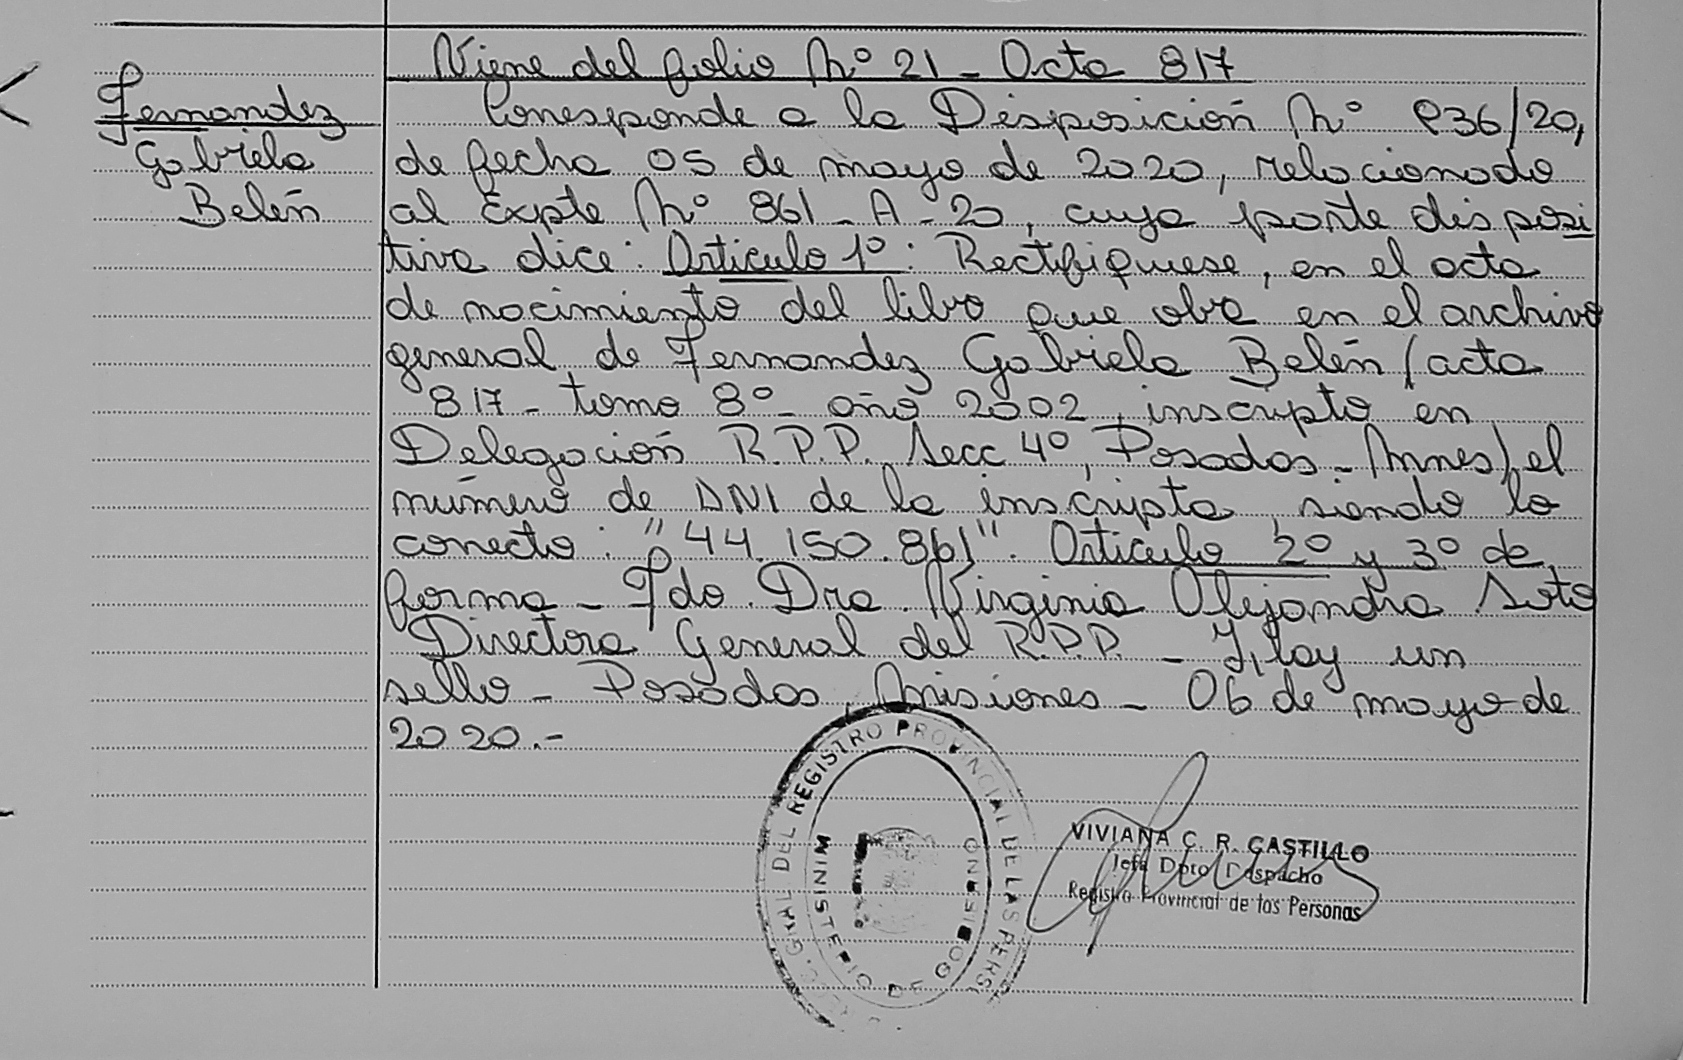 Viene del folio Nº 21 - Acta 817
Fernandez
Gabriela
Belén
Corresponde a la Disposición Nº 936/20,
de fecha 05 de mayo de 2020, relacionado
al Expte Nº 861 - A - 20, cuya parte disposi
tiva dice: Articulo 1º: Rectifiquese, en el acta
de nacimiento del libro que obra en el archivo
general de Fernandez Gabriela Belén (acta
817 - tomo 8º - año 2002, inscripto en
Delegación R.P.P. Secc 4º, Posadas - Mnes) el
número de DNI de la inscripta, siendo lo
correcto: "44.150.861". Articulo 2º y 3º de
forma - Fdo. Dra. Virginia Alejandra Soto
Directora General del R.P.P. - Y hay un
sello - Posadas, Misiones - 06 de mayo de
2020.-
GRAL DEL REGISTRO PROVINCIAL DE LAS PERS
MINISTERIO DE GOBIERNO
VIVIANA C. R. CASTILLO
Jefa Dpto Despacho
Registro Provincial de las Personas